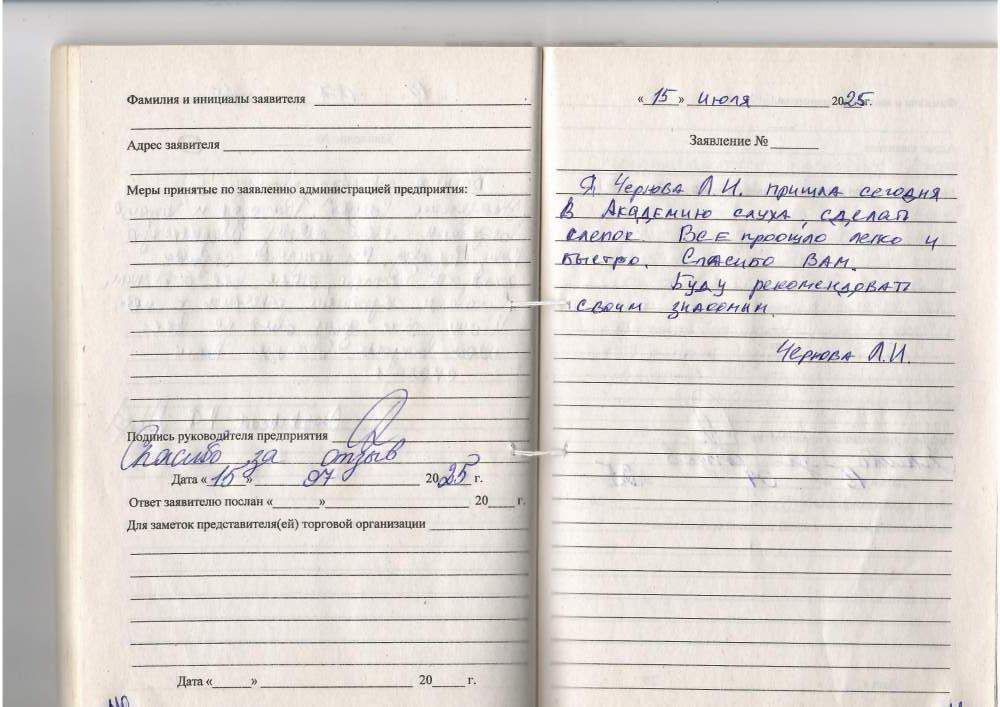 Фамилия и инициалы заявителя
Адрес заявителя
Меры принятые по заявлению администрацией предприятия:
Подпись руководителя предприятия
Спасибо за отзыв
Дата «15» 07 2025 г.
Ответ заявителю послан «» 20 г.
Для заметок представителя(ей) торговой организации
Дата «» 20 г.
«15» июля 2025г.
Заявление №
Я Чернова Л.И. пришла сегодня
в Академию слуха, сделать
слепок. Все прошло легко и
быстро. Спасибо Вам.
Буду рекомендовать
своим знакомым.
Чернова Л.И.